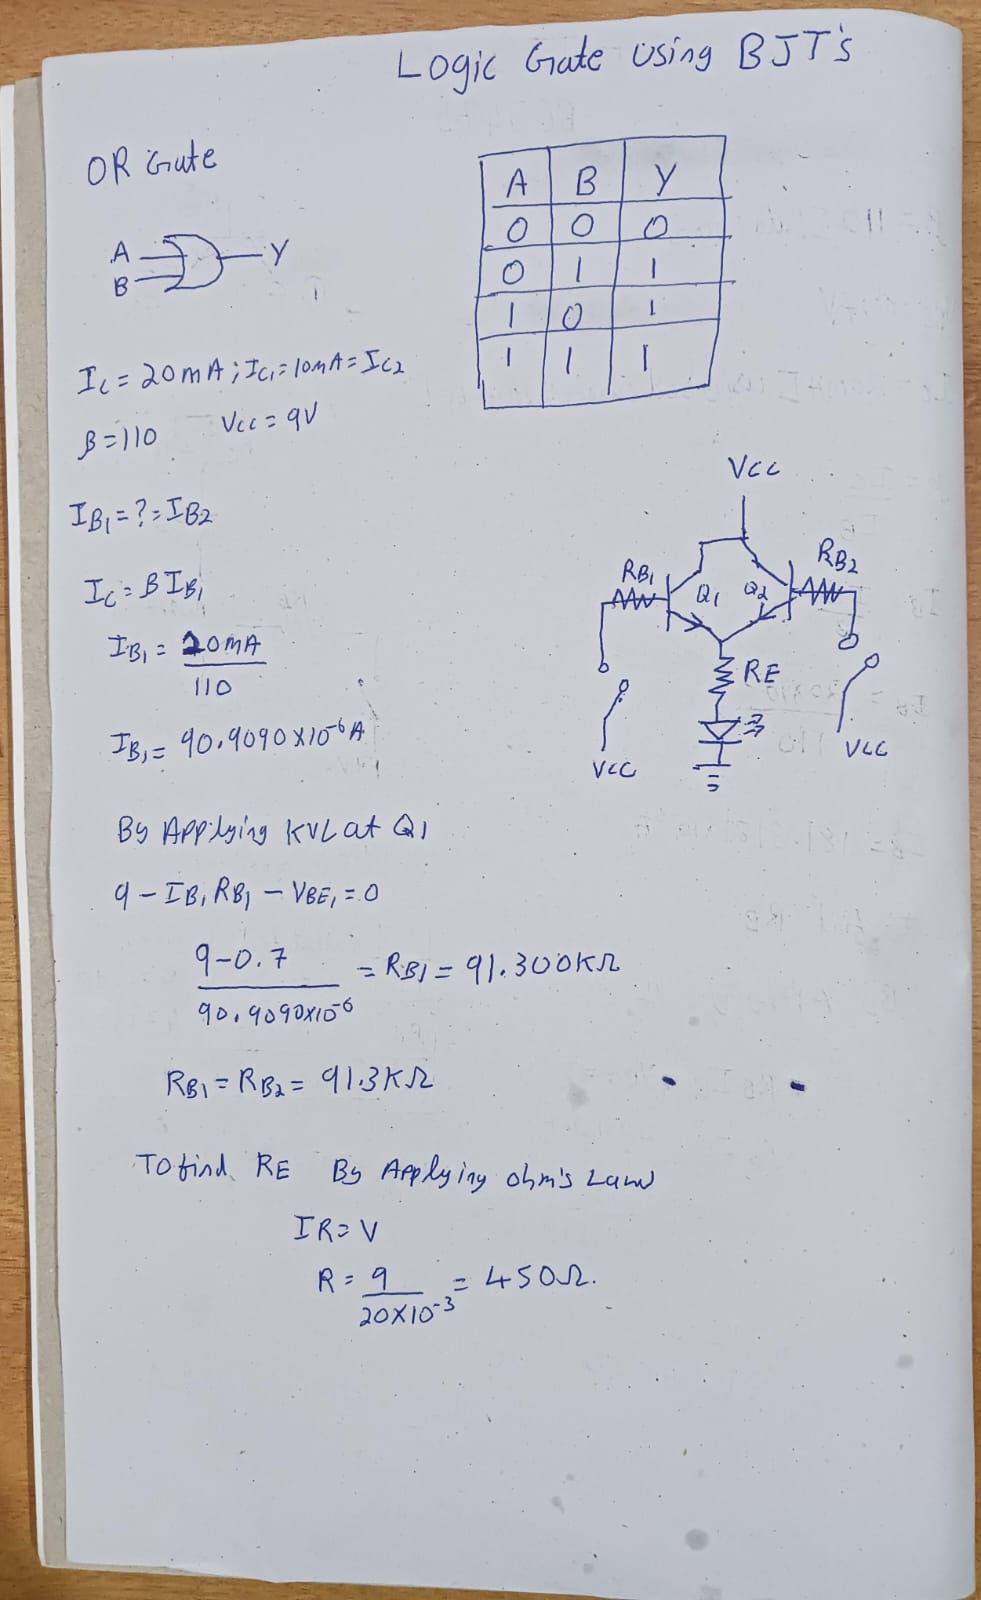 Logic Gate Using BJT's
OR Gate
A B Y
0 0 0
0 1 1
1 0 1
1 1 1
A
B
Y
Ic = 20mA ; Ic1 = 10mA = Ic2
β = 110 Vcc = 9V
IB1 = ? = IB2
Ic = β IB1
IB1 = 20mA
110
IB1 = 90.9090 x 10^-6 A
VCC
RB1
RB2
Q1
Q2
RE
VCC
VCC
By Applying KVL at Q1
9 - IB1 RB1 - VBE1 = 0
9-0.7 = RB1 = 91.300KΩ
90.9090x10^-6
RB1 = RB2 = 91.3KΩ
To find RE By Applying ohm's Law
IR = V
R = 9 = 450Ω.
20x10^-3